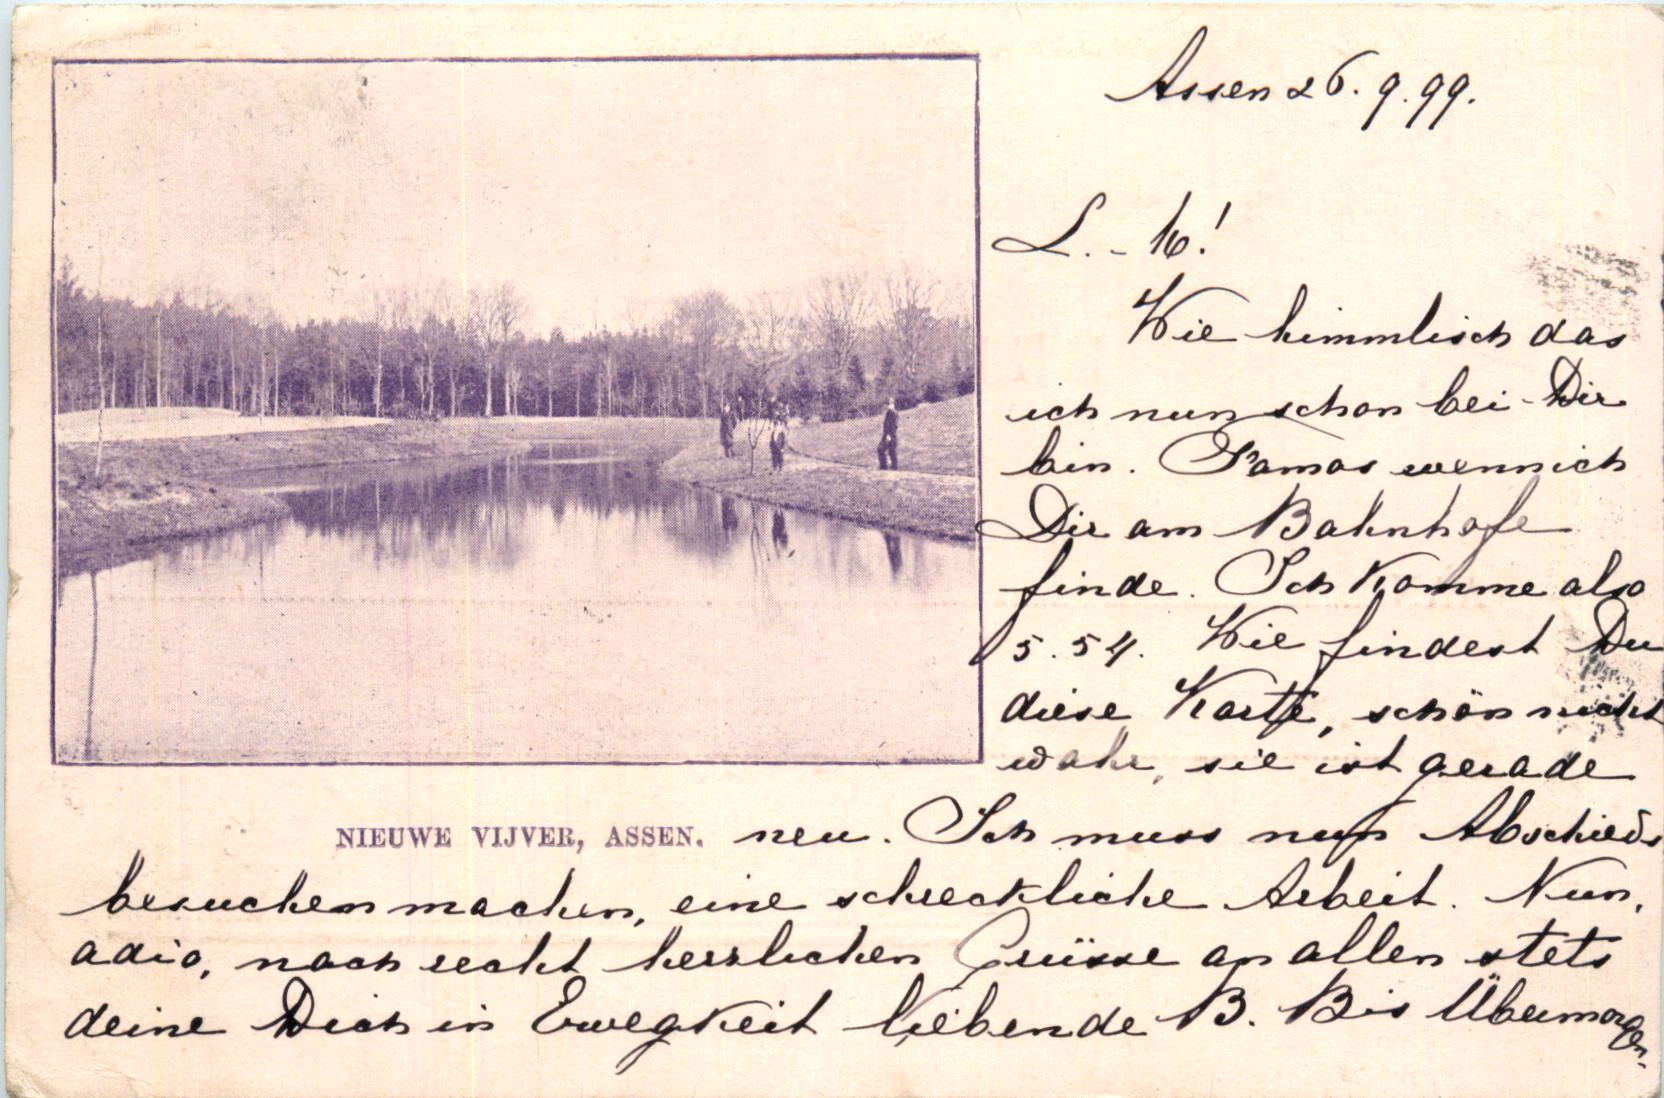 Assen 26. 9. 99.
L. - M!
Wie himmlisch das
ich nun schon bei Dir
bin. Famos wenn ich
Dir am Bahnhofe
finde. Ich komme also
5. 54. Wie findest Du
diese Karte, schön nicht
wahr, sie ist gerade
NIEUWE VIJVER, ASSEN.
neu. Ich muss nun Abschieds
besuchen machen, eine schreckliche Arbeit. Nun,
adio, noch recht herzlichen Grüsse an allen stets
deine Dich in Ewegkeit liebende B. Bis Übermorgen.